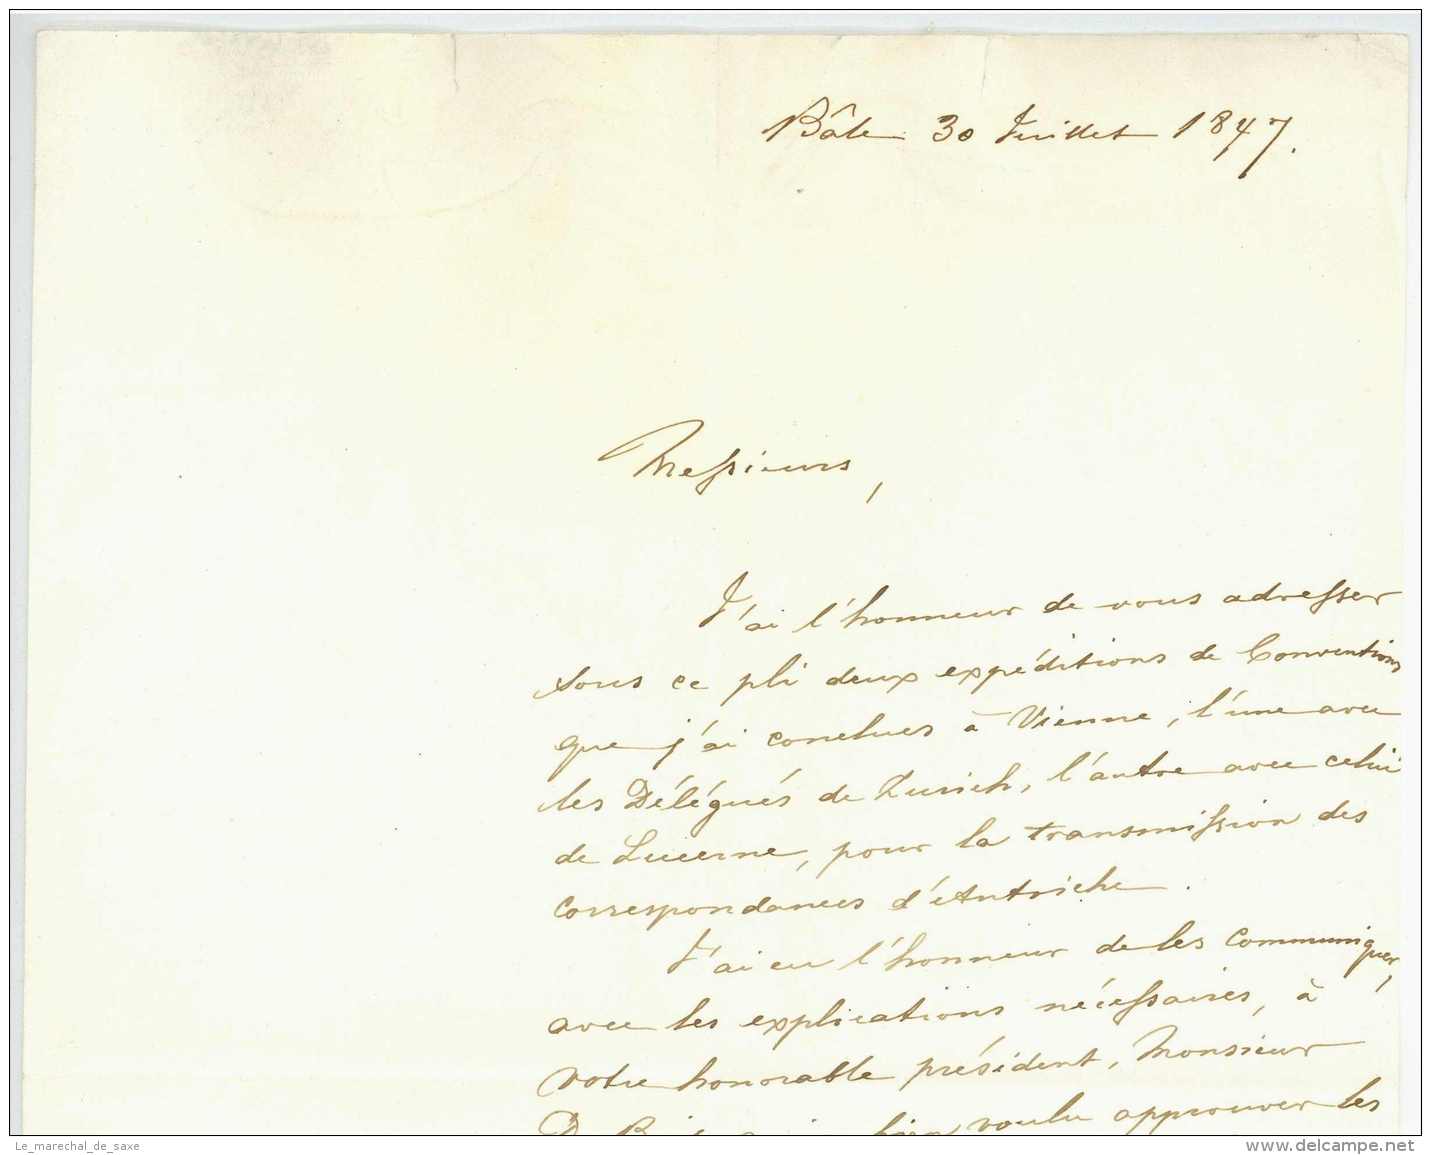 Bâle 30 Juillet 1847.
Messieurs,
J'ai l'honneur de vous adresser
sous ce pli deux expéditions de Conventions
que j'ai conclues à Vienne, l'une avec
les Délégués de Zurich, l'autre avec celui
de Lucerne, pour la transmission des
correspondances d'Autriche.
J'ai eu l'honneur de les communiquer,
avec les explications nécessaires, à
votre honorable président, Monsieur
bien voulu approuver les
Le_marechal_de_saxe
www.delcampe.net